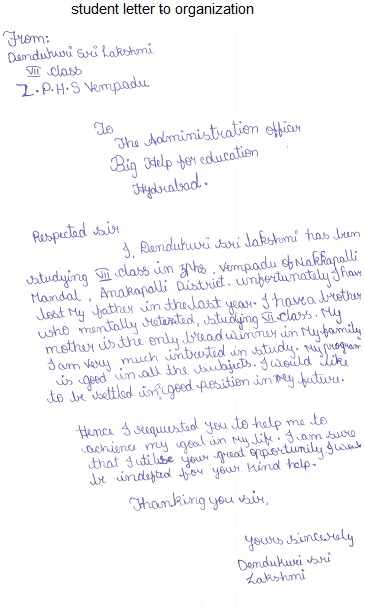 student letter to organization
From:
Dendukuri Sri Lakshmi
VII class
Z.P.H.S Vempadu
To
The Administration officer
Big Help for education
Hydrabad.
Respected sir
I, Dendukuri sri lakshmi has been
studying VII class in zphs, vempadu of Nakkapalli
Mandal, Anakapalli District. unfortunately I have
lost My father in the last year. I have a brother
who mentally retested, studying VI class. My
mother is the only breadwinner in My family
I am very much intrusted in study. My program
is good in all the subjects. I would like
to be settled in good position in my future.
Hence I requested you to help me to
achience my goal in my life. I am sure
that I utilise your great opportunity I
be indepted for your kind help.
Thanking you sir,
yours sincerely
Dendukuri sri
Lakshmi